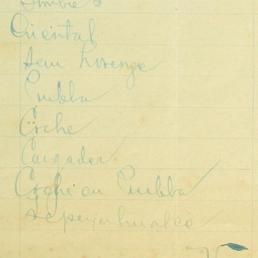 Oriental
San Lorenzo
Puebla
Coche
Cargador
Coche en Puebla